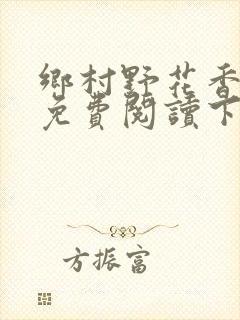 鄉村野花香
免費閱讀下
方振富